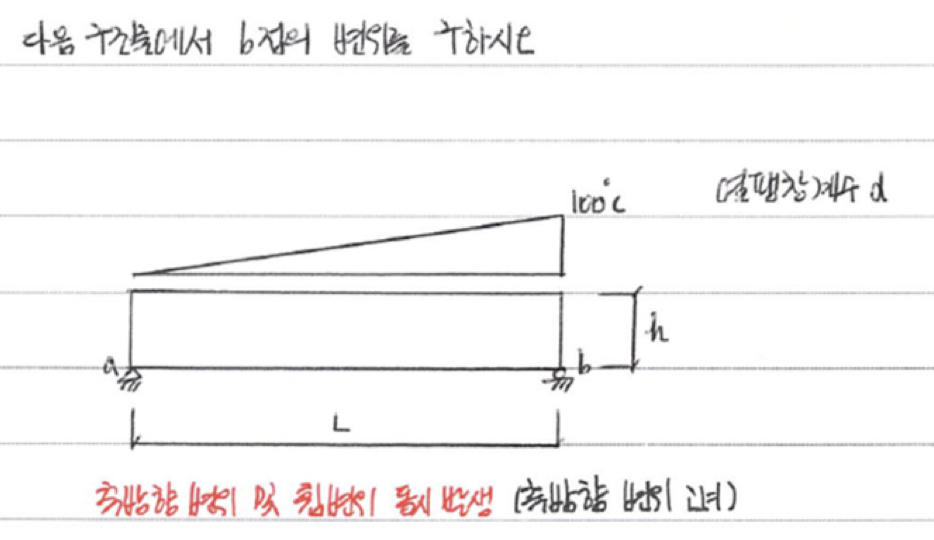 다음 구조물에서 b점의 변위를 구하시오
100°C
(열팽창)계수 α
h
a
b
L
축방향 변위 및 휨변위 동시 발생 (축방향 변위 고려)